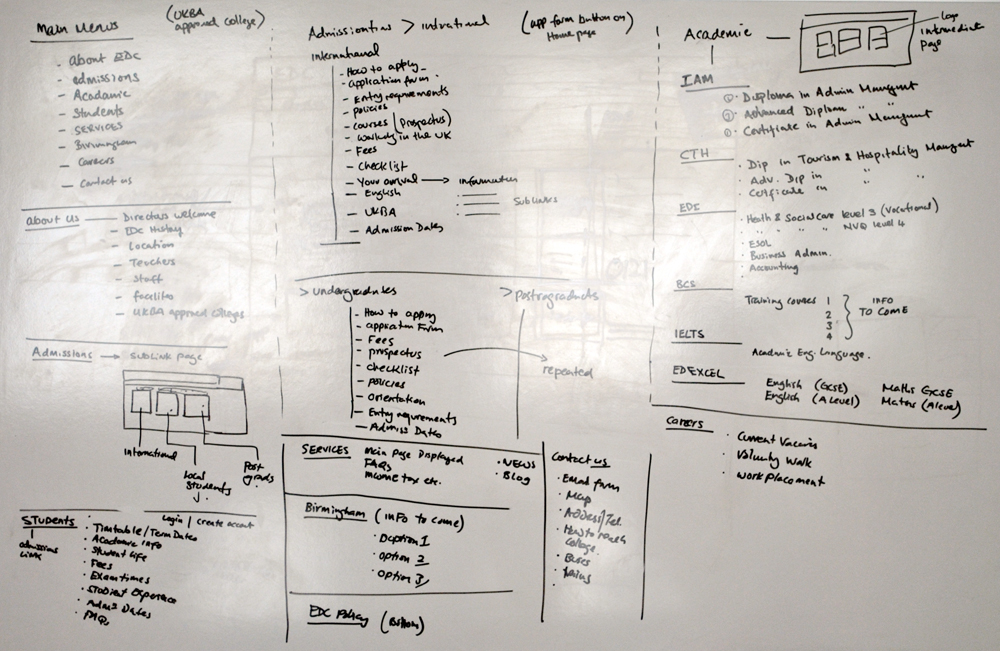 Main Menus
(UKBA
approved college)
. about EDC
- admissions
- Academic
- Students
- SERVICES
- Birmingham
- Careers
- Contact us
about us
Directors welcome
- EDC History
- Location
- Teachers
- Staff
- UKBA approved colleges
Admissions → SUBLINK page
International
Local
Students
Post
grads
STUDENTS
Login | create accout
admissions
Link
· Timetable/Term Dates
· Academic info
· Student life
· Fees
· Exam times
· Student Experience
· Adms Dates
· FAQs
Admissions >
(app form button on
Home page)
International
- How to apply
- application form.
- Entry requirements
- policies
- courses (Prospectus)
- working in the UK
- Fees
- Checklist
- Your arrival → information
- English
- UKBA
Sublinks
- Admission Dates
> undergraduates
- How to apply
- application Form
- Fees
- prospectus
- checklist
- policies
- orientation
- Entry requirements
- Admiss Dates
> postgraduates
repeated
SERVICES
Main page Displayed
FAQs
Income tax etc.
· NEWS
· Blog
Birmingham (info to come)
· Option 1
· Option 2
· Option 3
EDC Policy (Bottom)
Contact us
· Email form
· Map
· Address/Tel
· How to reach
college.
· Buses
· Trains
Academic
Logo
Intermediate
page
IAM
① · Diploma in Admin Managment
② · Advanced Diplom " "
③ · Certificate in Admin Managment
CTH
· Dip in Tourism & Hospitality Managent
· Adv. Dip in " "
· Certificate in " "
EDI
· Health & Social care level 3 (Vocational)
" " " " NVQ level 4
· ESOL
· Business Admin.
· Accounting
BCS
Training courses 1
2
3
4
INFO
TO COME
IELTS
Academic Eng. Language.
EDEXCEL
English (GCSE)
English (A Level)
Maths GCSE
Maths (A level)
Careers
· Current Vacancies
· Voluntry Work
· Work Placement